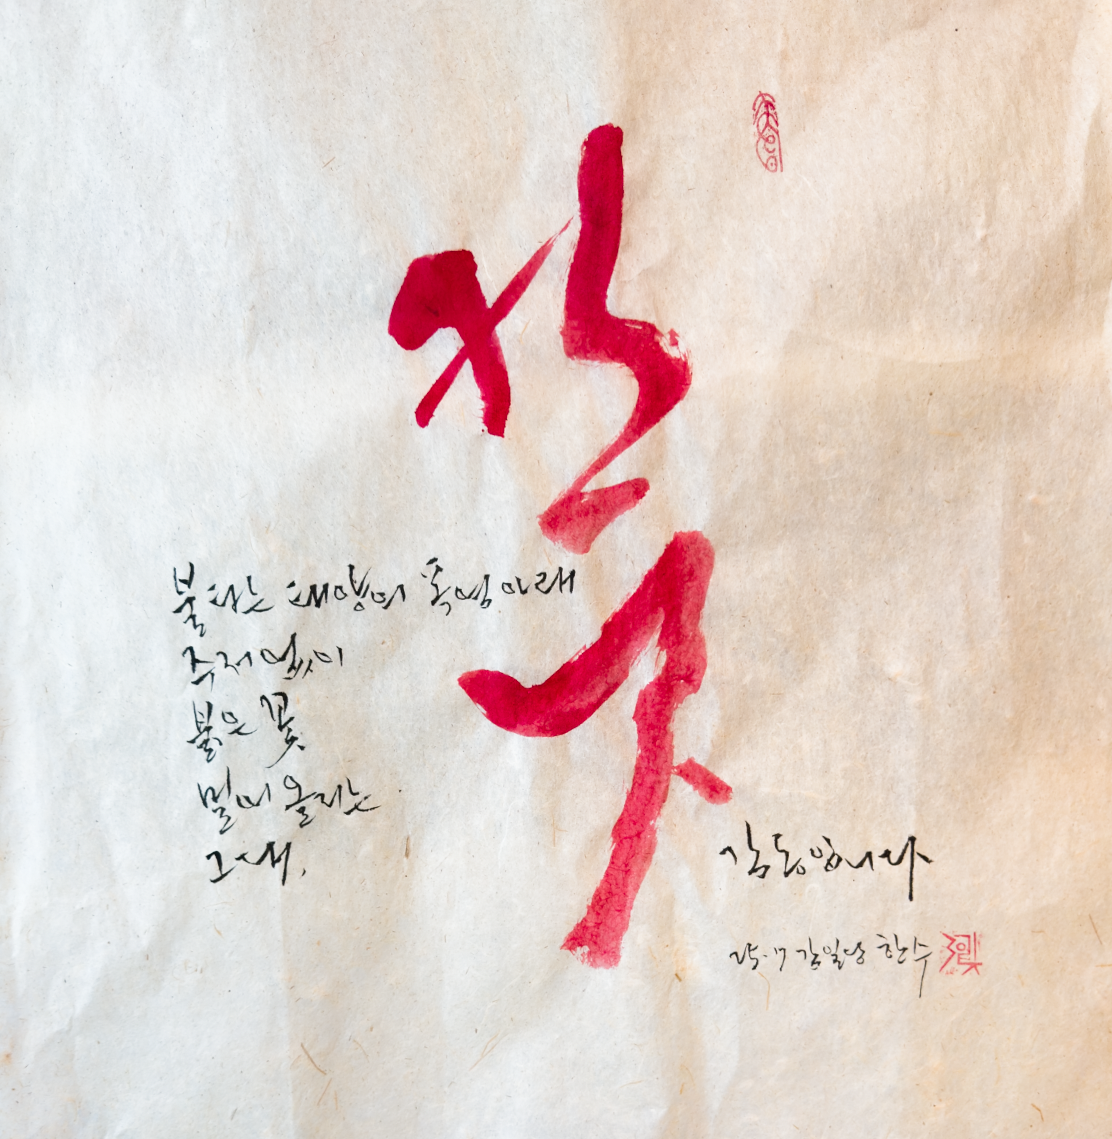 칸나
불타는 태양의 폭염 아래
주저 없이
붉은 꽃
밀어 올리는
그대,
감동입니다
25.7 한수